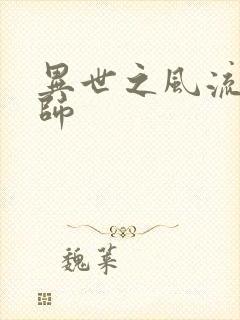 異世之風流
師
魏葉